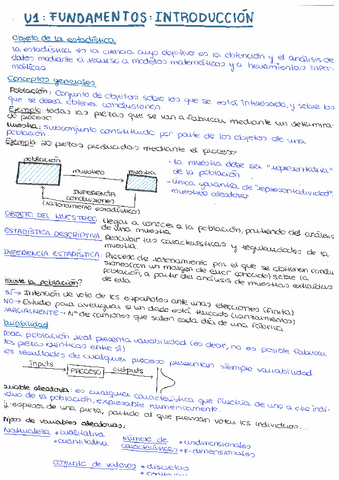 U1: FUNDAMENTOS: INTRODUCCIÓN
Objeto de la estadística
la estadística es la ciencia cuyo objetivo es la obtención y el análisis de
datos mediante el recurso a modelos matemáticos y a herramientas infor-
máticas
Conceptos generales
Población: Conjunto de objetos sobre los que se está interesado, y sobre los
que se desea obtener conclusiones
Ejemplo: todas las piezas que se van a fabricar mediante un determina-
do proceso
Muestra: subconjunto constituido por parte de los objetos de una
población
Ejemplo: piezas producidas mediante el proceso
población
muestreo
muestra
INFERENCIA
conclusiones
(razonamiento estadístico)
- la muestra debe ser "representativa"
de la población
- única garantía de "representatividud":
muestreo aleatorio
OBJETO DEL MUESTREO: llegar a conocer a la población, partiendo del análisis
de una muestra
ESTADÍSTICA DESCRIPTIVA: Describir las características y regularidades de la
muestra
INFERENCIA ESTADÍSTICA: Proceso de razonamiento por el que se obtienen conclu
siones (con un margen de error conocido) sobre la
población, a partir del análisis de muestras extraídas
de esta
Existe la población?
SÍ → Intención de voto de los españoles ante unas elecciones (finita)
NO → Estudio para averiguar si un dado está trucado (lanzamientos)
PARCIALMENTE → Nº de camiones que salen cada día de una fábrica
Variabilidad
toda población real presenta variabilidad (es decir, no es posible fabricar
dos piezas idénticas entre sí)
los resultados de cualquier proceso presentan siempre variabilidad
inputs
PROCESO
outputs
Variable aleatoria: es cualquier característica que fluctúa de uno a otro indi-
viduo de la población, expresable numéricamente.
Ej: espesor de una pieza, partido al que piensan votar los individuos...
Tipos de variables aleatorias:
Naturaleza
• cualitativa
• cuantitativa
Número de
características
• unidimensionales
• K-dimensionales
conjunto de valores
• discretas